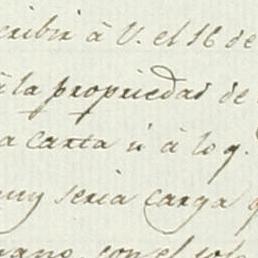 cribir á V. el 16 de
á la propriedad de
a carta ú á lo q.
muy seria carga q
mano, con el sob